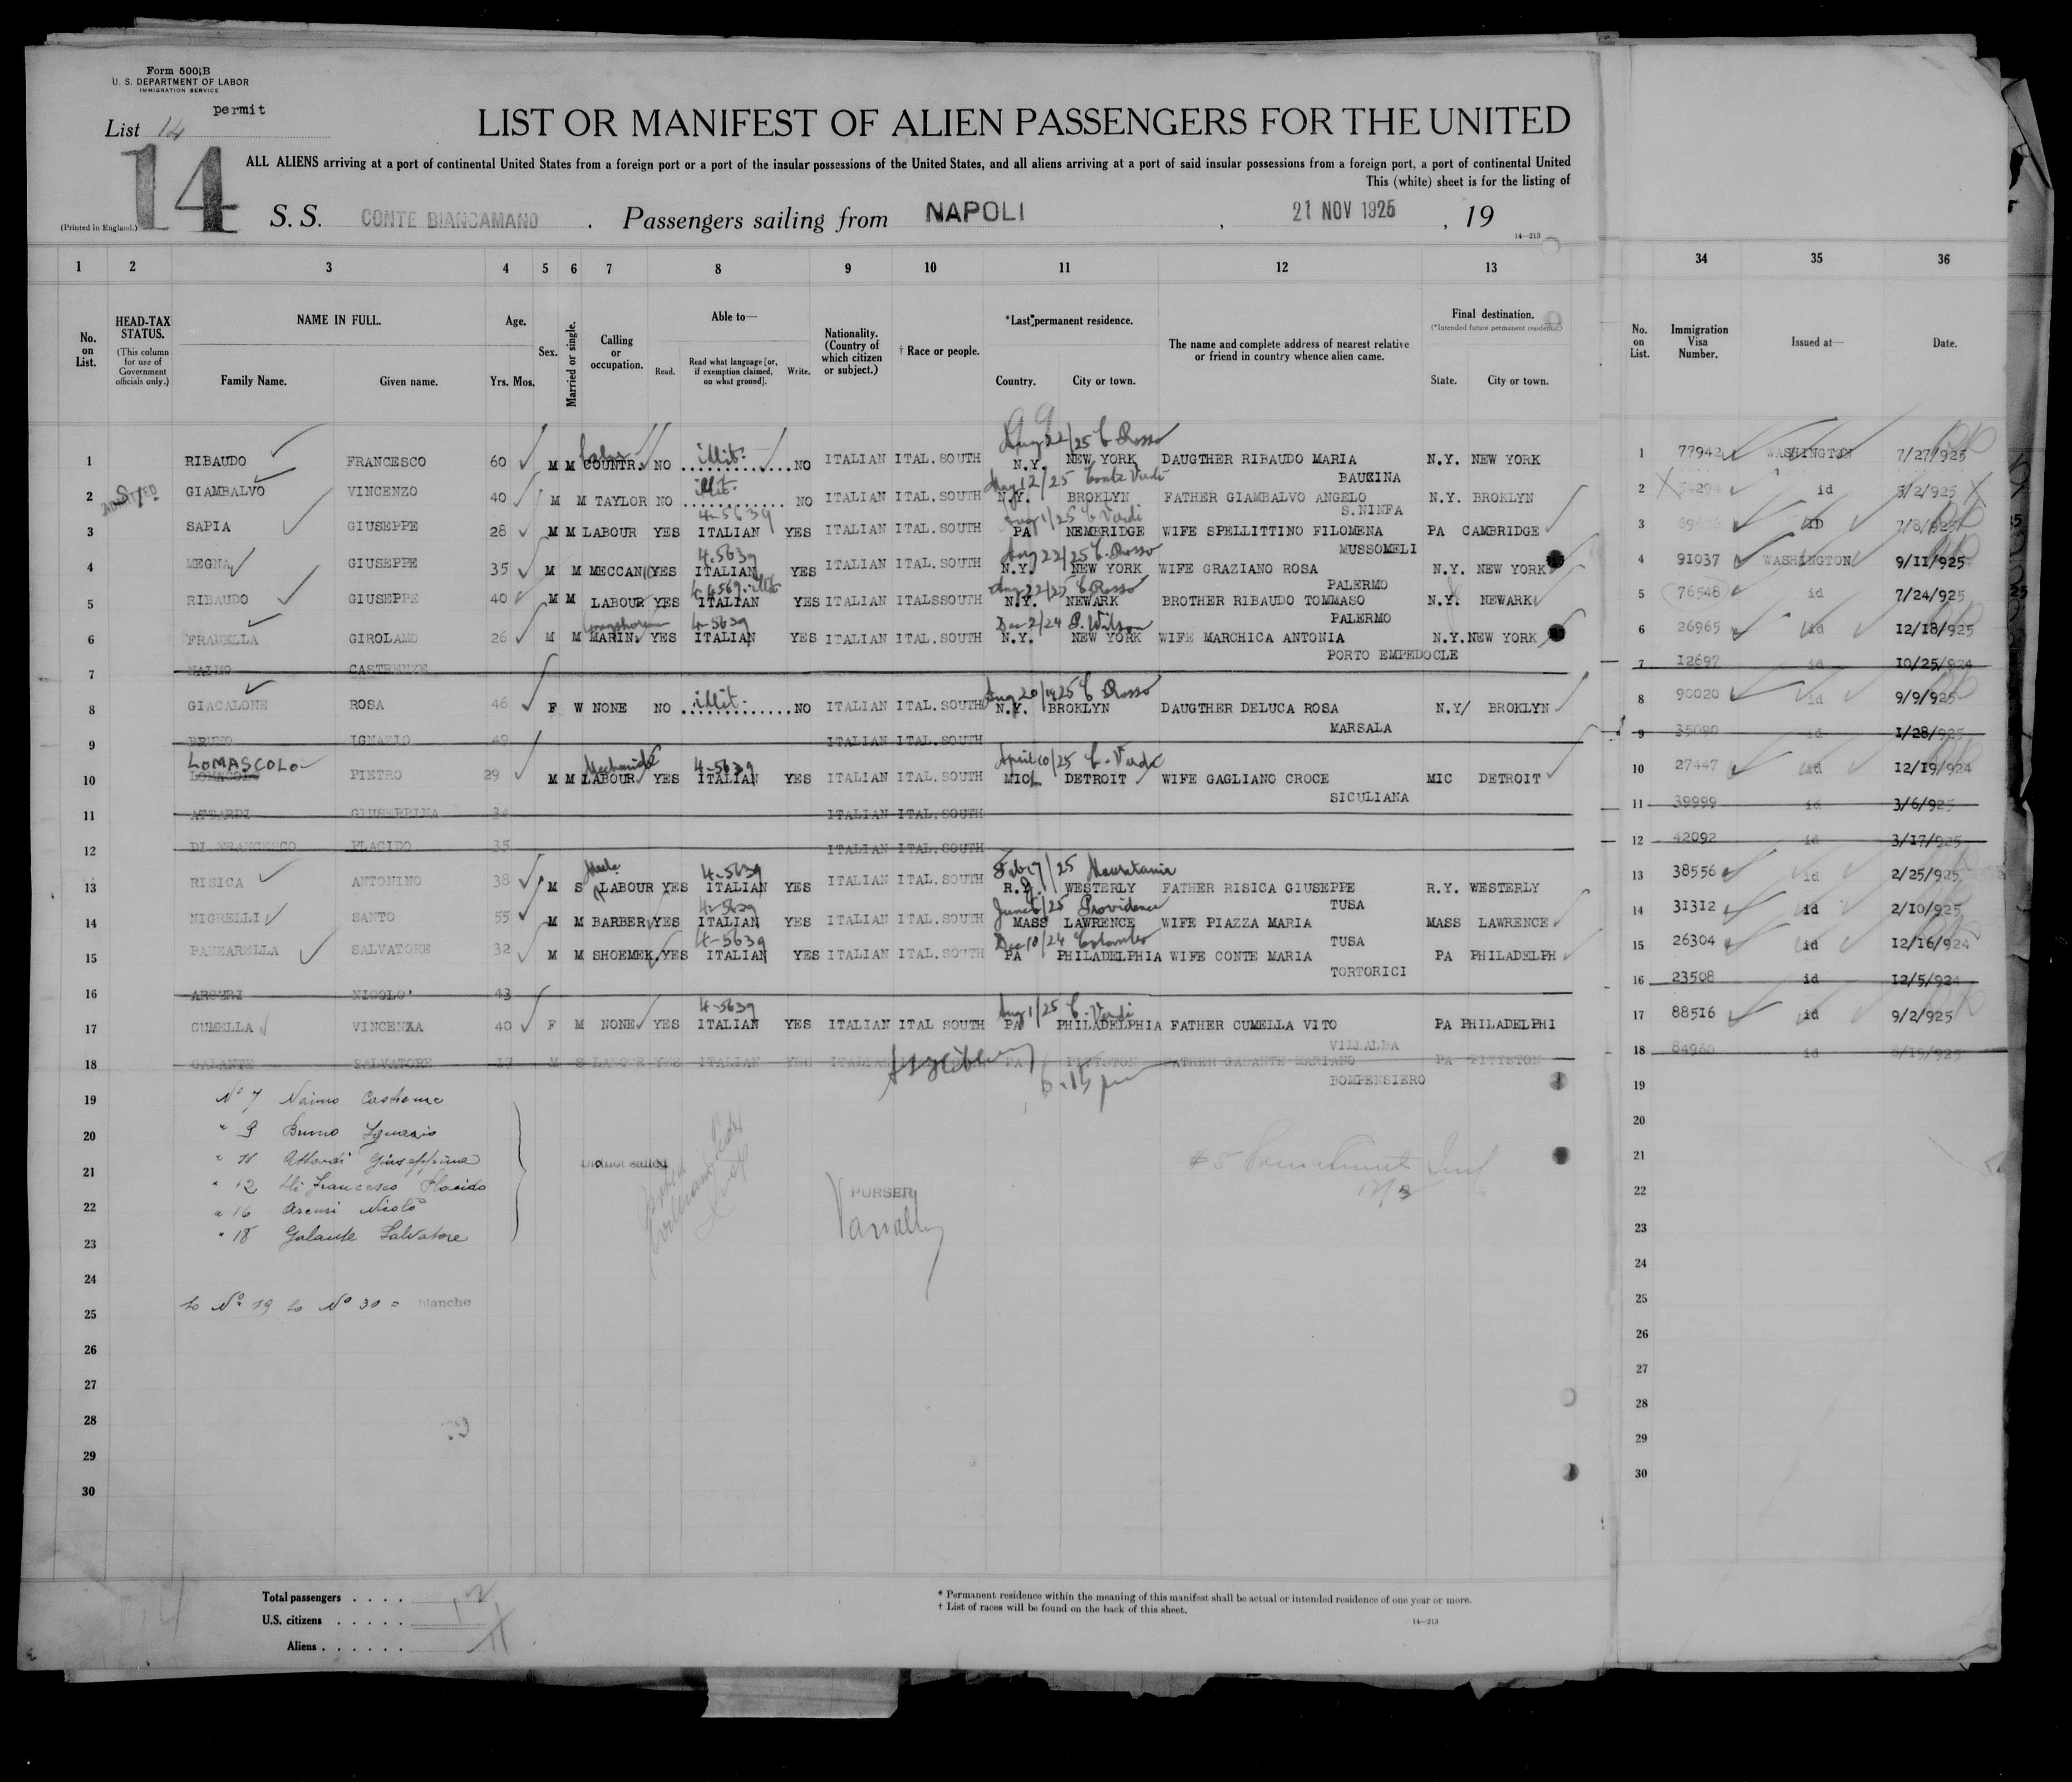 Form 500 B
U. S. DEPARTMENT OF LABOR
IMMIGRATION SERVICE
permit
List 14
14
(Printed in England.)
LIST OR MANIFEST OF ALIEN PASSENGERS FOR THE UNITED
ALL ALIENS arriving at a port of continental United States from a foreign port or a port of the insular possessions of the United States, and all aliens arriving at a port of said insular possessions from a foreign port, a port of continental United
This (white) sheet is for the listing of
S. S. CONTE BIANCAMANO . Passengers sailing from NAPOLI , 21 NOV 1925 , 19
14—213
1 2 3 4 5 6 7 8 9 10 11 12 13 34 35 36
No. on List.
HEAD-TAX STATUS.
(This column for use of Government officials only.)
NAME IN FULL.
Family Name. Given name.
Age.
Yrs. Mos.
Sex.
Married or single.
Calling or occupation.
Able to—
Read. Read what language [or, if exemption claimed, on what ground]. Write.
Nationality. (Country of which citizen or subject.)
† Race or people.
*Last permanent residence.
Country. City or town.
The name and complete address of nearest relative or friend in country whence alien came.
Final destination.
(*Intended future permanent residence)
State. City or town.
No. on List.
Immigration Visa Number.
Issued at—
Date.
Aug 22/25 C. Rosso
1 RIBAUDO FRANCESCO 60 M M COUNTR. NO illit. NO ITALIAN ITAL.SOUTH N.Y. NEW YORK DAUGTHER RIBAUDO MARIA N.Y. NEW YORK 1 77942 WASHINGTON 7/27/925
BAUCINA
May 12/25 Conte Verdi
ADMITTED
2 GIAMBALVO VINCENZO 40 M M TAYLOR NO illit. NO ITALIAN ITAL.SOUTH N.Y. BROKLYN FATHER GIAMBALVO ANGELO N.Y. BROKLYN 2 54294 id 5/2/925
S.NINFA
4-5639 Aug 1/25 C. Verdi
3 SAPIA GIUSEPPE 28 M M LABOUR YES ITALIAN YES ITALIAN ITAL.SOUTH PA NEMBRIDGE WIFE SPELLITTINO FILOMENA PA CAMBRIDGE 3 69626 ID 7/8/925
MUSSOMELI
4-5639 Aug 22/25 C. Rosso
4 MEGNA GIUSEPPE 35 M M MECCAN YES ITALIAN YES ITALIAN ITAL.SOUTH N.Y. NEW YORK WIFE GRAZIANO ROSA N.Y. NEW YORK 4 91037 WASHINGTON 9/11/925
PALERMO
Aug 22/25 C. Rosso
5 RIBAUDO GIUSEPPE 40 M M LABOUR YES ITALIAN YES ITALIAN ITALSSOUTH N.Y. NEWARK BROTHER RIBAUDO TOMMASO N.Y. NEWARK 5 76548 id 7/24/925
PALERMO
Longshorem 4-5639 Dec 2/24 P. Wilson
6 FRADELLA GIROLAMO 26 M M MARIN. YES ITALIAN YES ITALIAN ITAL.SOUTH N.Y. NEW YORK WIFE MARCHICA ANTONIA N.Y. NEW YORK 6 26965 id 12/18/925
PORTO EMPEDOCLE
7 NAIMO CASTRENZE 7 12697 id 10/25/924
Aug 20/1925 C. Rosso
8 GIACALONE ROSA 46 F W NONE NO illit. NO ITALIAN ITAL.SOUTH N.Y. BROKLYN DAUGTHER DELUCA ROSA N.Y/ BROKLYN 8 90020 id 9/9/925
MARSALA
9 BRUNO IGNAZIO 49 ITALIAN ITAL.SOUTH 9 35090 id 1/28/925
LOMASCOLO Mechanic 4-5639 April 10/25 C. Verde
10 LOMASCOLO PIETRO 29 M M LABOUR YES ITALIAN YES ITALIAN ITAL.SOUTH MIC DETROIT WIFE GAGLIANO CROCE MIC DETROIT 10 27447 id 12/19/924
SICULIANA
11 ATTARDI GIUSEPPINA 34 ITALIAN ITAL.SOUTH 11 39999 id 3/6/925
12 DI FRANCESCO PLACIDO 35 ITALIAN ITAL.SOUTH 12 42092 id 3/17/925
4-5639 Feb 17/25 Mauretania
13 RISICA ANTONINO 38 M S LABOUR YES ITALIAN YES ITALIAN ITAL.SOUTH R.Y. WESTERLY FATHER RISICA GIUSEPPE R.Y. WESTERLY 13 38556 id 2/25/925
TUSA
4-5639 June 6/25 Providence
14 NIGRELLI SANTO 55 M M BARBER YES ITALIAN YES ITALIAN ITAL.SOUTH MASS LAWRENCE WIFE PIAZZA MARIA MASS LAWRENCE 14 31312 id 2/10/925
TUSA
4-5639 Dec 10/24 Colombo
15 PANZARELLA SALVATORE 32 M M SHOEMEK. YES ITALIAN YES ITALIAN ITAL.SOUTH PA PHILADELPHIA WIFE CONTE MARIA PA PHILADELPH 15 26304 id 12/16/924
TORTORICI
16 ARCURI NICOLO' 43 16 23508 id 12/5/924
4-5639 Aug 1/25 C. Verdi
17 CUMELLA VINCENZA 40 F M NONE YES ITALIAN YES ITALIAN ITAL SOUTH PA PHILADELPHIA FATHER CUMELLA VITO PA PHILADELPHI 17 88516 id 9/2/925
VILLALBA
18 GALANTE SALVATORE 17 M S LABOUR YES ITALIAN YES ITALIAN PA PITTSTON FATHER GALANTE MARIANO PA PITTSTON 18 84960 id 8/19/925
BOMPENSIERO
19 Nº 7 Naimo Castrense 19
20 " 9 Bruno Ignazio 20
21 " 11 Attardi Giuseppina Did not sailed 21
22 " 12 Di Francesco Placido PURSER 22
" 16 Arcuri Nicolò
23 " 18 Galante Salvatore 23
24 24
25 to Nº 19 to Nº 30 = blanche 25
26 26
27 27
28 28
29 29
30 30
Total passengers . . . . 12
U.S. citizens . . . . .
Aliens . . . . . .
* Permanent residence within the meaning of this manifest shall be actual or intended residence of one year or more.
† List of races will be found on the back of this sheet.
14—213